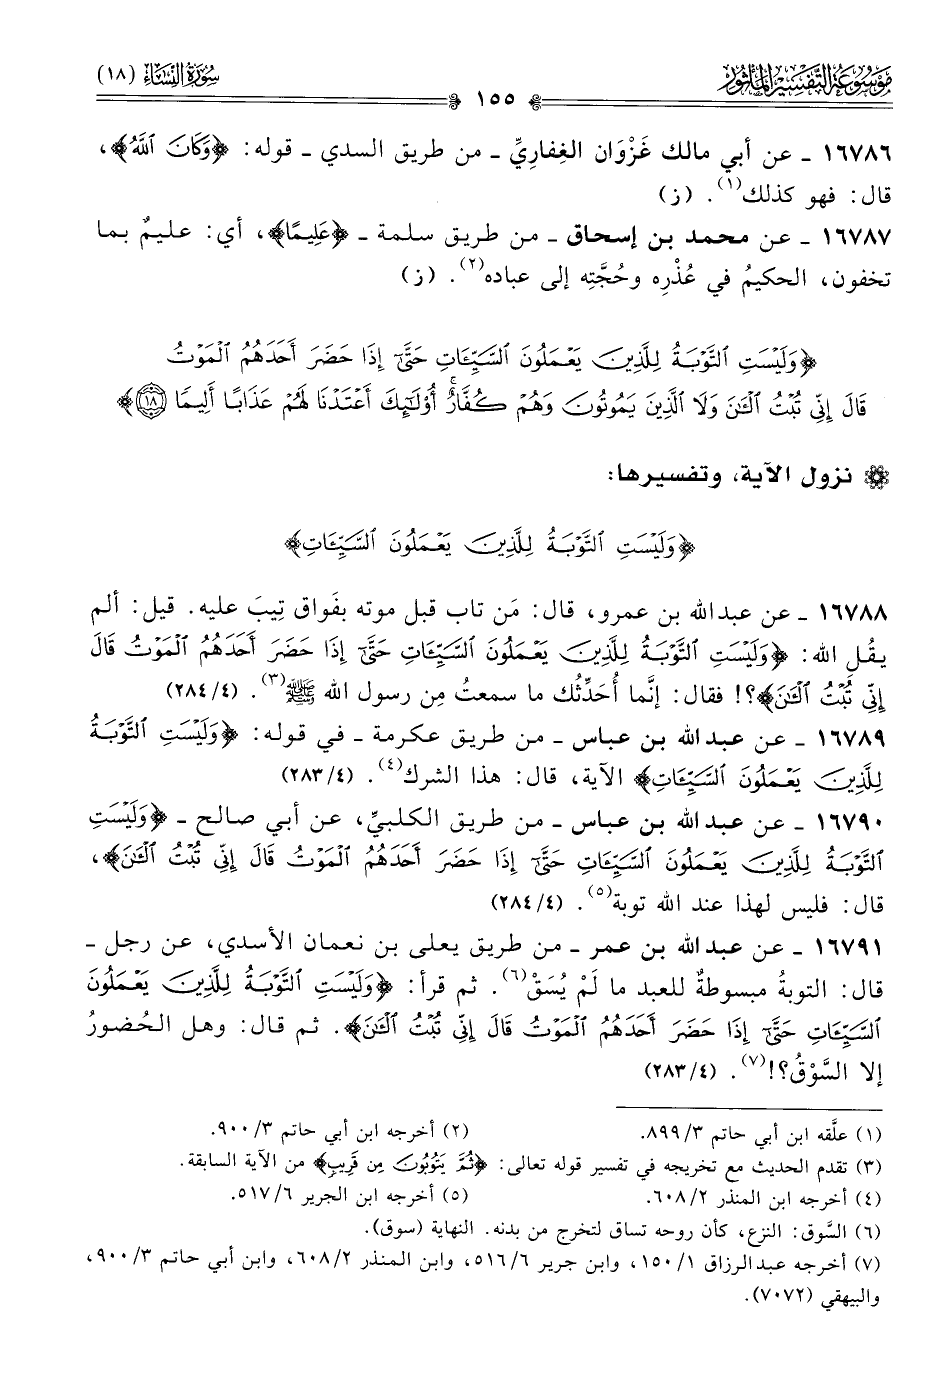 مَوْسُوعَة التَّفْسِير المَأثُور
١٥٥
سُورَةُ النِّسَاءِ (١٨)
١٦٧٨٦ ـ عن أبي مالك غَزْوَان الغِفاريِّ ـ من طريق السدي ـ قوله: ﴿وَكَانَ ٱللَّهُ﴾،
قال: فهو كذلك(١). (ز)
١٦٧٨٧ ـ عن محمد بن إسحاق ـ من طريق سلمة ـ ﴿عَلِيمًا﴾، أي: عليمٌ بما
تخفون، الحكيمُ في عُذْرِه وحُجَّتِه إلى عباده(٢). (ز)
﴿وَلَيْسَتِ ٱلتَّوْبَةُ لِلَّذِينَ يَعْمَلُونَ ٱلسَّيِّئَاتِ حَتَّىٰٓ إِذَا حَضَرَ أَحَدَهُمُ ٱلْمَوْتُ
قَالَ إِنِّي تُبْتُ ٱلْـَٰٔنَ وَلَا ٱلَّذِينَ يَمُوتُونَ وَهُمْ كُفَّارٌ ۚ أُو۟لَٰٓئِكَ أَعْتَدْنَا لَهُمْ عَذَابًا أَلِيمًا ١٨﴾
نزول الآية، وتفسيرها:
﴿وَلَيْسَتِ ٱلتَّوْبَةُ لِلَّذِينَ يَعْمَلُونَ ٱلسَّيِّئَاتِ﴾
١٦٧٨٨ ـ عن عبد الله بن عمرو، قال: مَن تاب قبل موته بفَواق تِيبَ عليه. قيل: ألم
يقُلِ الله: ﴿وَلَيْسَتِ ٱلتَّوْبَةُ لِلَّذِينَ يَعْمَلُونَ ٱلسَّيِّئَاتِ حَتَّىٰٓ إِذَا حَضَرَ أَحَدَهُمُ ٱلْمَوْتُ قَالَ
إِنِّي تُبْتُ ٱلْـَٰٔنَ﴾؟! فقال: إنَّما أُحَدِّثُك ما سمعتُ مِن رسول الله ﷺ(٣). (٤/ ٢٨٤)
١٦٧٨٩ ـ عن عبد الله بن عباس ـ من طريق عكرمة ـ في قوله: ﴿وَلَيْسَتِ ٱلتَّوْبَةُ
لِلَّذِينَ يَعْمَلُونَ ٱلسَّيِّئَاتِ﴾ الآية، قال: هذا الشرك(٤). (٤/ ٢٨٣)
١٦٧٩٠ ـ عن عبد الله بن عباس ـ من طريق الكلبيِّ، عن أبي صالح ـ ﴿وَلَيْسَتِ
ٱلتَّوْبَةُ لِلَّذِينَ يَعْمَلُونَ ٱلسَّيِّئَاتِ حَتَّىٰٓ إِذَا حَضَرَ أَحَدَهُمُ ٱلْمَوْتُ قَالَ إِنِّي تُبْتُ ٱلْـَٰٔنَ﴾،
قال: فليس لهذا عند الله توبة(٥). (٤/ ٢٨٤)
١٦٧٩١ ـ عن عبد الله بن عمر ـ من طريق يعلى بن نعمان الأسدي، عن رجل ـ
قال: التوبةُ مبسوطةٌ للعبد ما لَمْ يُسَقْ(٦). ثم قرأ: ﴿وَلَيْسَتِ ٱلتَّوْبَةُ لِلَّذِينَ يَعْمَلُونَ
ٱلسَّيِّئَاتِ حَتَّىٰٓ إِذَا حَضَرَ أَحَدَهُمُ ٱلْمَوْتُ قَالَ إِنِّي تُبْتُ ٱلْـَٰٔنَ﴾. ثم قال: وهل الحُضورُ
إلا السَّوْقُ؟!(٧). (٤/ ٢٨٣)
(١) علَّقه ابن أبي حاتم ٣/ ٨٩٩. (٢) أخرجه ابن أبي حاتم ٣/ ٩٠٠.
(٣) تقدم الحديث مع تخريجه في تفسير قوله تعالى: ﴿ثُمَّ يَتُوبُونَ مِن قَرِيبٍ﴾ من الآية السابقة.
(٤) أخرجه ابن المنذر ٢/ ٦٠٨. (٥) أخرجه ابن الجرير ٦/ ٥١٧.
(٦) السَّوق: النزع، كأن روحه تساق لتخرج من بدنه. النهاية (سوق).
(٧) أخرجه عبد الرزاق ١/ ١٥٠، وابن جرير ٦/ ٥١٦، وابن المنذر ٢/ ٦٠٨، وابن أبي حاتم ٣/ ٩٠٠،
والبيهقي (٧٠٧٢).